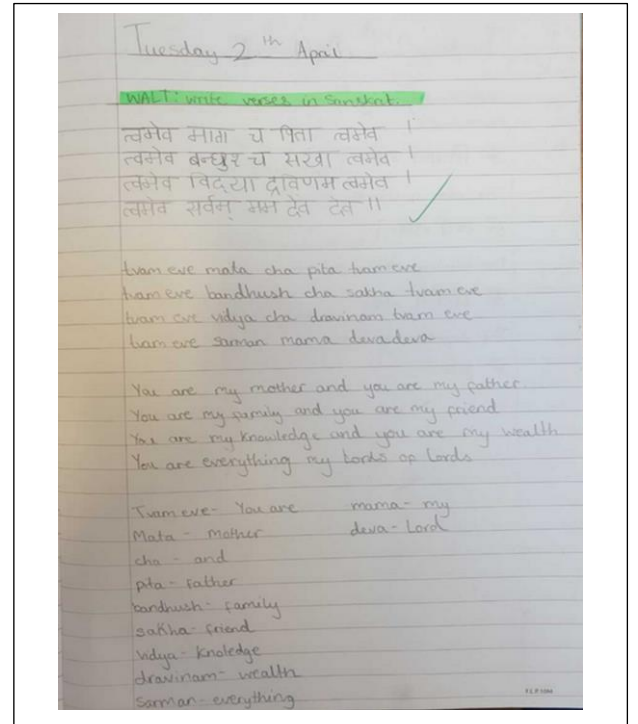 Tuesday 2th April
WALT: write verses in Sanskrit.
त्वमेव माता च पिता त्वमेव ।
त्वमेव बन्धुर च सखा त्वमेव ।
त्वमेव विद्या द्राविणम त्वमेव ।
त्वमेव सर्वम् मम देव देव ॥
tvam eve mata cha pita tvam eve
tvam eve bandhush cha sakha tvam eve
tvam eve vidya cha dravinam tvam eve
tvam eve sarman mama deva deva
You are my mother and you are my father
You are my family and you are my friend
You are my knowledge and you are my wealth
You are everything my Lords of Lords
Tvam eve- You are mama- my
Mata - mother deva- Lord
cha - and
pita - father
bandhush - family
sakha - friend
vidya - knoledge
dravinam - wealth
sarman - everything